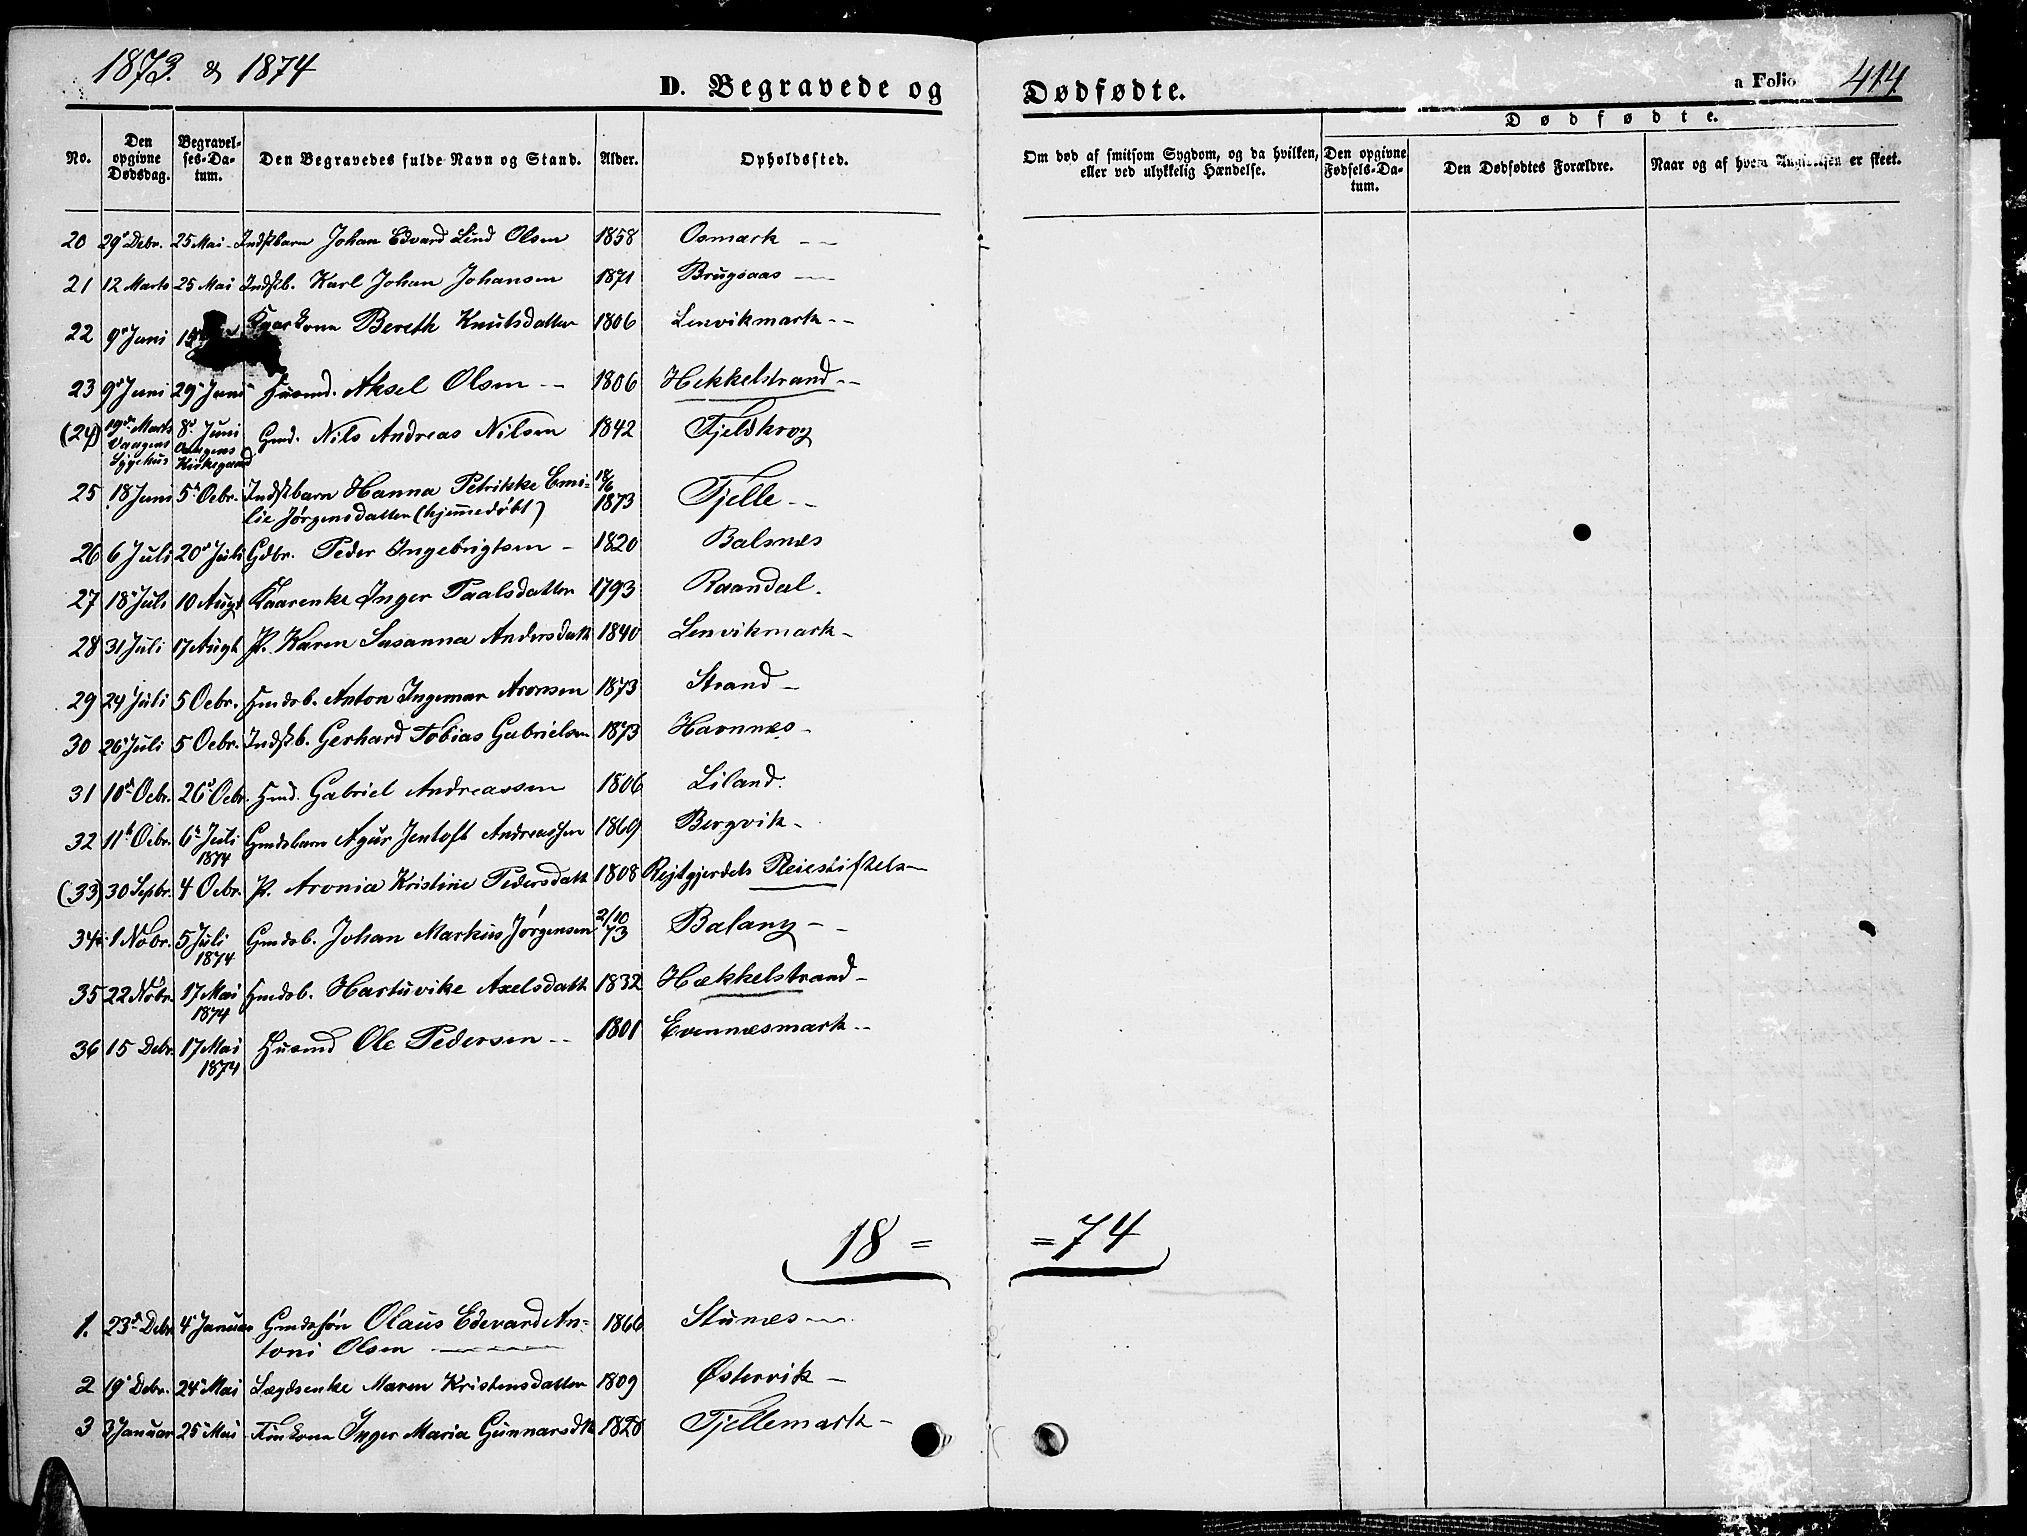 1873. & 1874
D. Begravede og Dødfødte.
a Folio 414
No.
Den opgivne Dødsdag.
Begravelses-Datum.
Den Begravedes fulde Navn og Stand.
Alder.
Opholdssted.
Om død af smitsom Sygdom, og da hvilken, eller ved ulykkelig Hændelse.
Dødfødte.
Den opgivne Fødsels-Datum.
Den Dødfødtes Forældre.
Naar og af hvem Anmeldelsen er skeet.
20 29d Debr. 25 Mai Indstbarn Johan Edvard Lind Olsen 1858 Osmark
21 12 Marts 25 Mai Indstb. Karl Johan Johansen 1871 Brugsaas
22 9d Juni Kone Bereth Knutsdatter 1806 Lenvikmark
23 9d Juni 29d Juni Husmd. Aksel Olsen 1806 Hekkelstrand
(24) 19de Marts Vaagens Sygehus 8d Juni Vaagens Kirkegaard Gmd. Nils Andreas Nilsen 1842 Fjeldkrog
25 18 Juni 5d Oebr. Indstbarn Hanna Petrikke Emi-
lie Jørgensdatter (hjemmedøbt) 18/6 1873 Tjelle
26 6 Juli 20d Juli Gdbr. Peder Ingebrigtsen 1820 Balsnes
27 18d Juli 10 Augt Kaarenke Inger Paalsdatter 1793 Raandal.
28 31 Juli 17 Augt P. Karen Susanna Andersdatt 1840 Lenvikmark
29 24 Juli 5 Oebr. Hmdsb. Anton Ingemar Aronsen 1873 Strand
30 26d Juli 5 Oebr. Indstb. Gerhard Tobias Gabrielsen 1873 Havnnes
31 10d Oebr. 26d Oebr. Hmd. Gabriel Andreassen 1806 Liland.
32 11t Oebr. 6d Juli 1874 Gmdsbarn Agur Jentoft Andreassen 1869 Bergvik
(33) 30 Sepbr. 4 Oebr. P. Aronia Kristine Pedersdatt 1808 Rejtgjerdets Pleiestiftels
34 1 Nobr. 5 Juli 1874 Gmdsb. Johan Markus Jørgensen 2/10 73 Balang
35 22 Nobr. 17 Mai 1874 Hmdsb. Hartuvike Axelsdatt 1832 Hækkelstrand
36 15 Debr. 17 Mai 1874 Husmd Ole Pedersen 1801 Evennesmark
18 = = 74
1. 23d Debr 4d Januar Gmdssøn Olaus Edevard An=
toni Olsen 1866 Stunes
2 19d Debr. 24d Mai Lægdsenke Maren Kristensdatter 1809 Østervik
3 3 Januar 25d Mai Finkone Inger Maria Gunnarsdtt 1828 Tjellemark